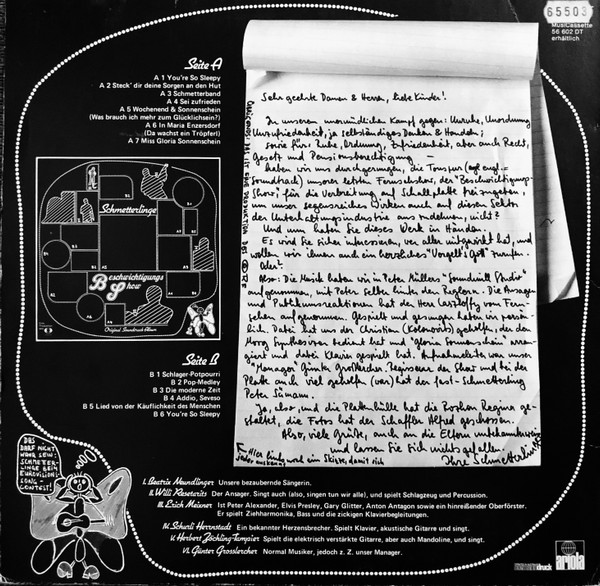 65503
MusiCassette
56 602 DT
erhältlich
Seite A
A 1 You're So Sleepy
A 2 Steck' dir deine Sorgen an den Hut
A 3 Schmetterband
A 4 Sei zufrieden
A 5 Wochenend & Sonnenschein
(Was brauch ich mehr zum Glücklichsein?)
A 6 In Maria Enzersdorf
(Da wachst ein Tröpferl)
A 7 Miss Gloria Sonnenschein
Schmetterlinge
Beschwichtigungs
Show
Original Soundtrack Album
Seite B
B 1 Schlager-Potpourri
B 2 Pop-Medley
B 3 Die moderne Zeit
B 4 Addio, Seveso
B 5 Lied von der Käuflichkeit des Menschen
B 6 You're So Sleepy
Sehr geehrte Damen & Herren, liebe Kinder!
In unserem unermüdlichen Kampf gegen: Unruhe, Unordnung
Unzufriedenheit, ja selbständiges Denken & Handeln;
sowie für: Ruhe, Ordnung, Zufriedenheit, aber auch Recht,
Gesetz und Pensionsberechtigung —
haben wir uns durchgerungen, die Tonspur (auf engl.=
Soundtrack) unserer letzten Fernsehshow, der "Beschwichtigungs-
Show" für die Verbreitung auf Schallplatte freizugeben,
um unser segensreiches Wirken auch auf diesen Sektor
der Unterhaltungsindustrie auszudehnen, nicht?
Und nun haben Sie dieses Werk in Händen.
Es wird Sie sicher interessieren, wer aller mitgewirkt hat, und
wollen wir ihnen auch ein herzliches "Vergelt's Gott" zurufen
oder?
Also: Die Musik haben wir in Peter Müllers "Soundmill Studio"
aufgenommen, mit Peter selber hinter den Reglern. Die Ansage
und Publikumsreaktionen hat der Herr vom Fern-
sehen aufgenommen. Gespielt und gesungen haben wir persön-
lich. Dabei hat uns der Christian (Kolonovits) geholfen, der den
Moog Synthesizer bedient hat und "Gloria Sonnenschein" arran-
giert und dabei Klavier gespielt hat. Aufnahmeleiter war unser
"Manager" Günter Großlercher. Regisseur der Show und bei der
Platte auch viel geholfen (war) hat der fast-Schmetterling
Peter Simann.
Ja, also, und die Plattenhülle hat die Regina ge-
staltet, die Fotos hat der Schaffler Alfred geschossen.
Also, viele Grüße, auch an die Eltern unbekannterweise
und lassen Sie sich nichts gefallen.
Ihre Schmetterlinge
DAS
DARF NICHT
WAHR SEIN:
SCHMETTER-
LINGE BEIM
EUROVISION
SONG-
CONTEST!
I. Beatrix Neundlinger Unsere bezaubernde Sängerin.
II. Willi Resetarits Der Ansager. Singt auch (also, singen tun wir alle), und spielt Schlagzeug und Percussion.
III. Erich Meixner Ist Peter Alexander, Elvis Presley, Gary Glitter, Anton Antagon sowie ein hinreißender Oberförster.
Er spielt Ziehharmonika, Bass und die zickigen Klavierbegleitungen.
IV. Schurli Herrnstadt Ein bekannter Herzensbrecher. Spielt Klavier, akustische Gitarre und singt.
V. Herbert Zöchling-Tampier Spielt die elektrisch verstärkte Gitarre, aber auch Mandoline, und singt.
VI. Günter Grosslercher Normal Musiker, jedoch z. Z. unser Manager.
druck
ariola